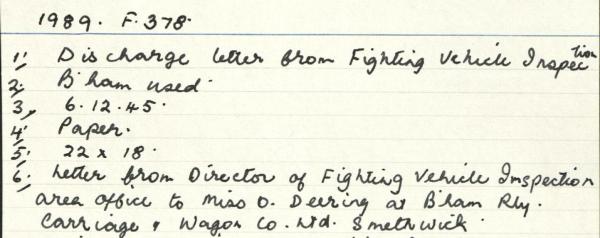 1989. F. 378.
1; Discharge letter from Fighting Vehicle Inspection
2. B'ham used.
3, 6.12.45.
4; Paper.
5; 22 x 18.
6; Letter from Director of Fighting Vehicle Inspection
area office to Miss O. Deering at B'ham Rly.
Carriage & Wagon Co. Ltd. Smethwick.